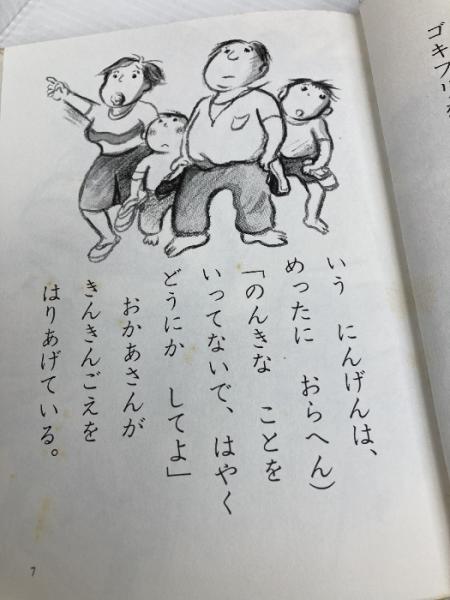 ゴキブリを
いう　にんげんは、
めったに　おらへん）
「のんきな　ことを
いってないで、はやく
どうにか　してよ」
おかあさんが
きんきんごえを
はりあげている。
7